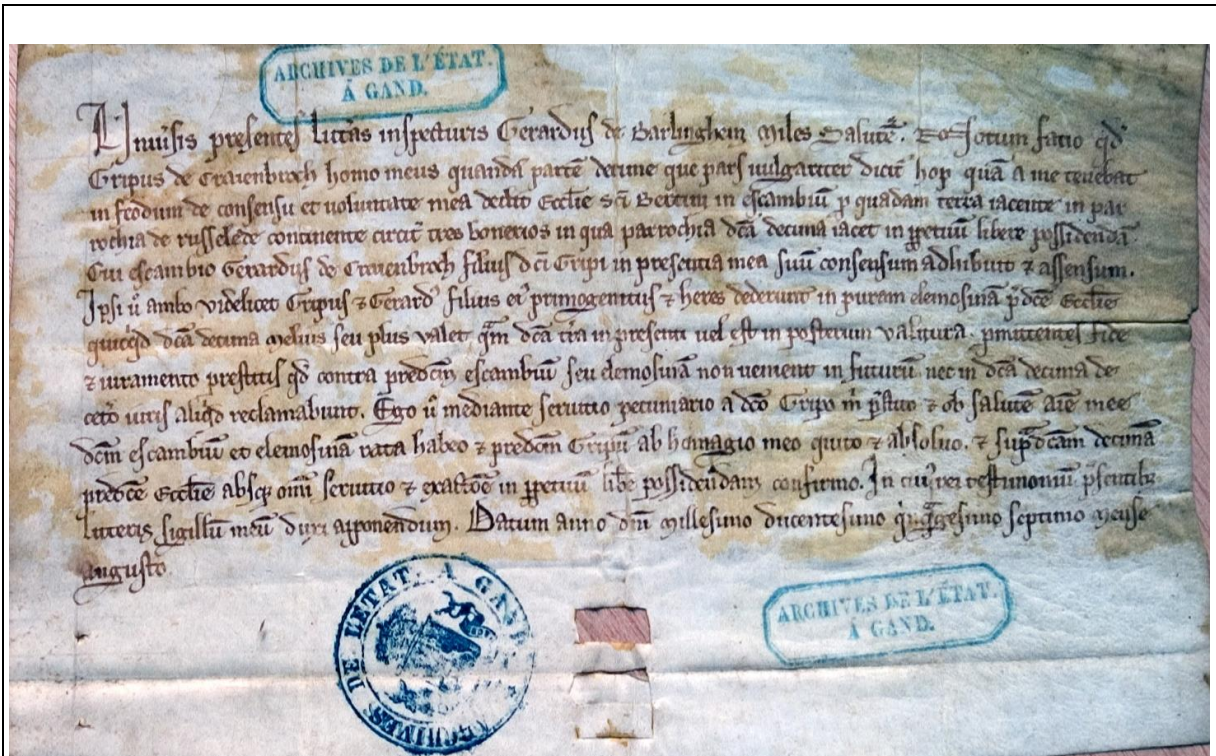 ARCHIVES DE L'ÉTAT.
À GAND.
Uniu͛sis presentes litt͛as inspecturis Gerardus de Barlinghem miles Salutē. Notum facio qd̕
Gripus de Craienbroch homo meus quandā partē decime que pars uulgarit͛ dicit͛ hop quā a me tenebat
in feodum de consensu et voluntate mea dedit Ecclīe sc̄i Bertini in escambiū p quadam terra iacente in par
rochia de russelede continente circit͛ tres bonerios in qua parrochia dc̄a decima iacet in ppetuū libere possidendā.
Cui escambio Gerardus de Craienbroch filius dc̄i Gripi in presentia mea suū consensum adhibuit ⁊ assensum.
Ipsi ů ambo videlicet Gripus ⁊ Gerard᾽ filius ei᾽ primogenitus ⁊ heres dederunt in puram elemosinā p̄dc̄e Ecclīe
quicqd dc̄a decima melius seu plus valet qm̄ dc̄a tr̄a in presenti uel est in posterum valitura. pmittentes fide
⁊ iuramento prestitis qd̕ contra predcm̄ escambiū seu elemosinā non uenient in futurū nec in dc̄a decima de
cet͛o iuris aliqd reclamabunt. Ego ů mediante seruitio pecuniario a dc̄o Gripo m̄ p̄stito ⁊ ob salutē aīe mee
dcm̄ escambiū et elemosinā rata habeo ⁊ predcm̄ Gripū ab homagio meo quito ⁊ absoluo. ⁊ sup̄dc̄am decimā
predc̄e Ecclīe absq; omī seruitio ⁊ exactōe in ppetuū lib͛e possidendam confirmo. In cui᾽ rei testimoniū p̄sentib;
litteris sigillū meū duxi apponendum. Datum anno dn̄i Millesimo ducentesimo qͥnqͣgesimo septimo mense
augusto
ARCHIVES DE L'ÉTAT. A GAND
ARCHIVES DE L'ÉTAT.
À GAND.